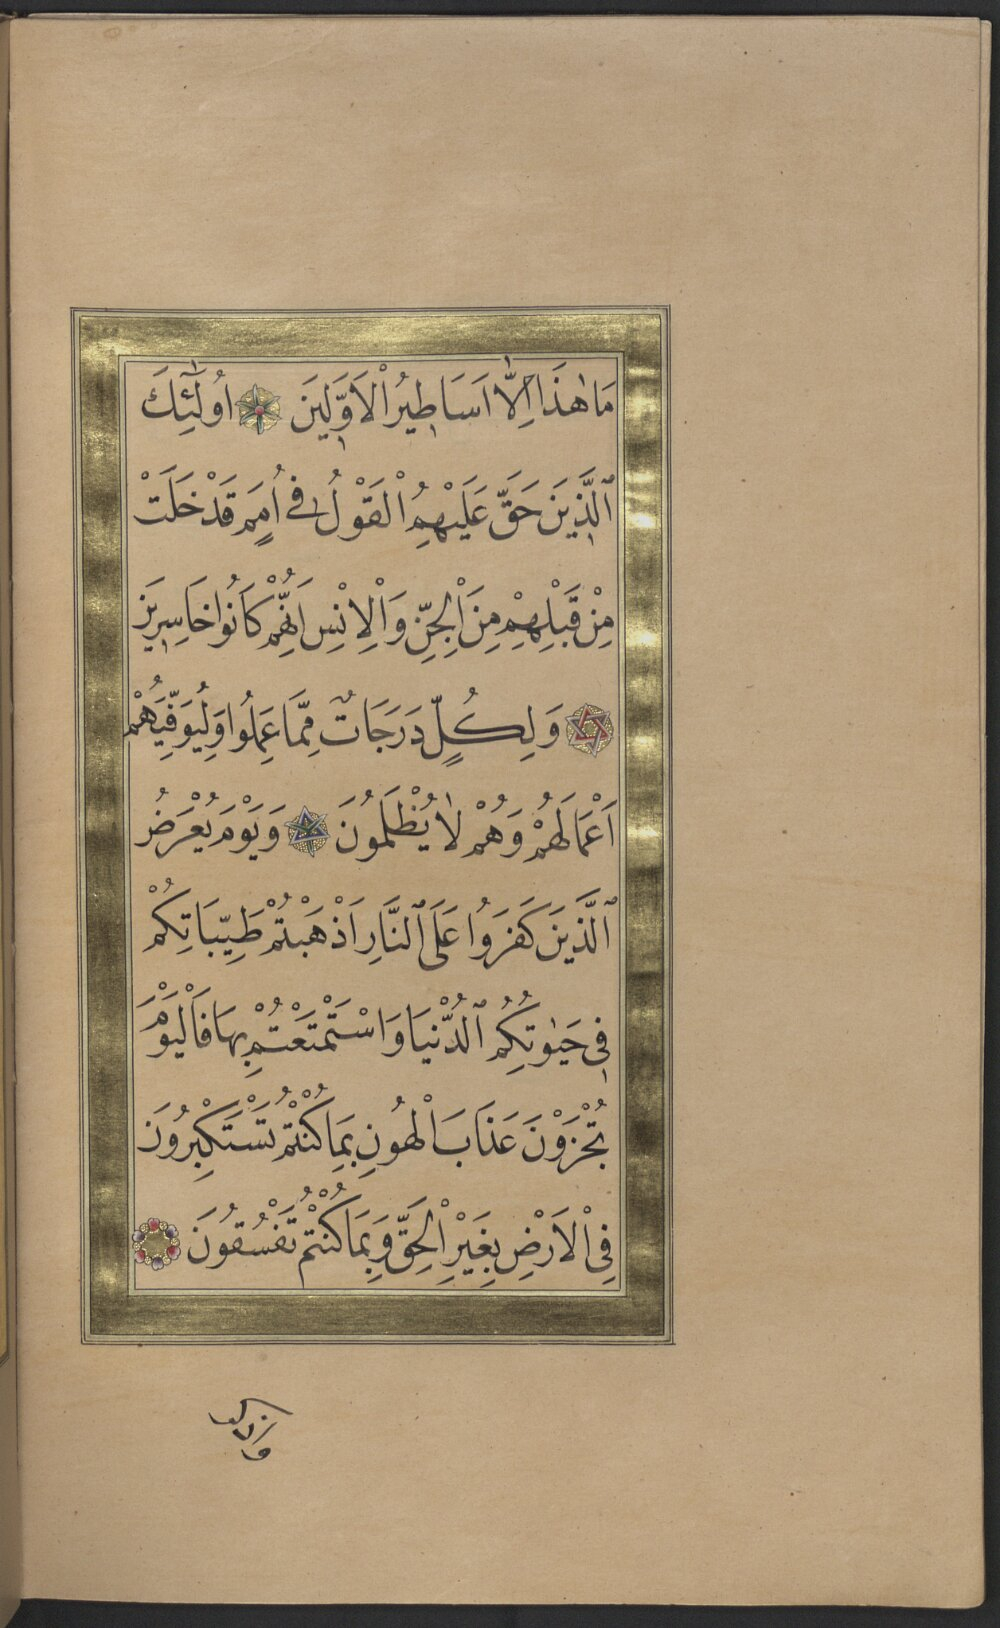 مَا هٰذَا اِلَّا اَسَاطِيرُ الْاَوَّلِينَ اُولٰٓئِكَ
الَّذِينَ حَقَّ عَلَيْهِمُ الْقَوْلُ فِي اُمَمٍ قَدْ خَلَتْ
مِنْ قَبْلِهِمْ مِنَ الْجِنِّ وَالْاِنْسِ اِنَّهُمْ كَانُوا خَاسِرِينَ
وَلِكُلٍّ دَرَجَاتٌ مِمَّا عَمِلُوا وَلِيُوَفِّيَهُمْ
اَعْمَالَهُمْ وَهُمْ لَا يُظْلَمُونَ وَيَوْمَ يُعْرَضُ
الَّذِينَ كَفَرُوا عَلَى النَّارِ اَذْهَبْتُمْ طَيِّبَاتِكُمْ
فِي حَيٰوتِكُمُ الدُّنْيَا وَاسْتَمْتَعْتُمْ بِهَا فَالْيَوْمَ
تُجْزَوْنَ عَذَابَ الْهُونِ بِمَا كُنْتُمْ تَسْتَكْبِرُونَ
فِي الْاَرْضِ بِغَيْرِ الْحَقِّ وَبِمَا كُنْتُمْ تَفْسُقُونَ
واذكر